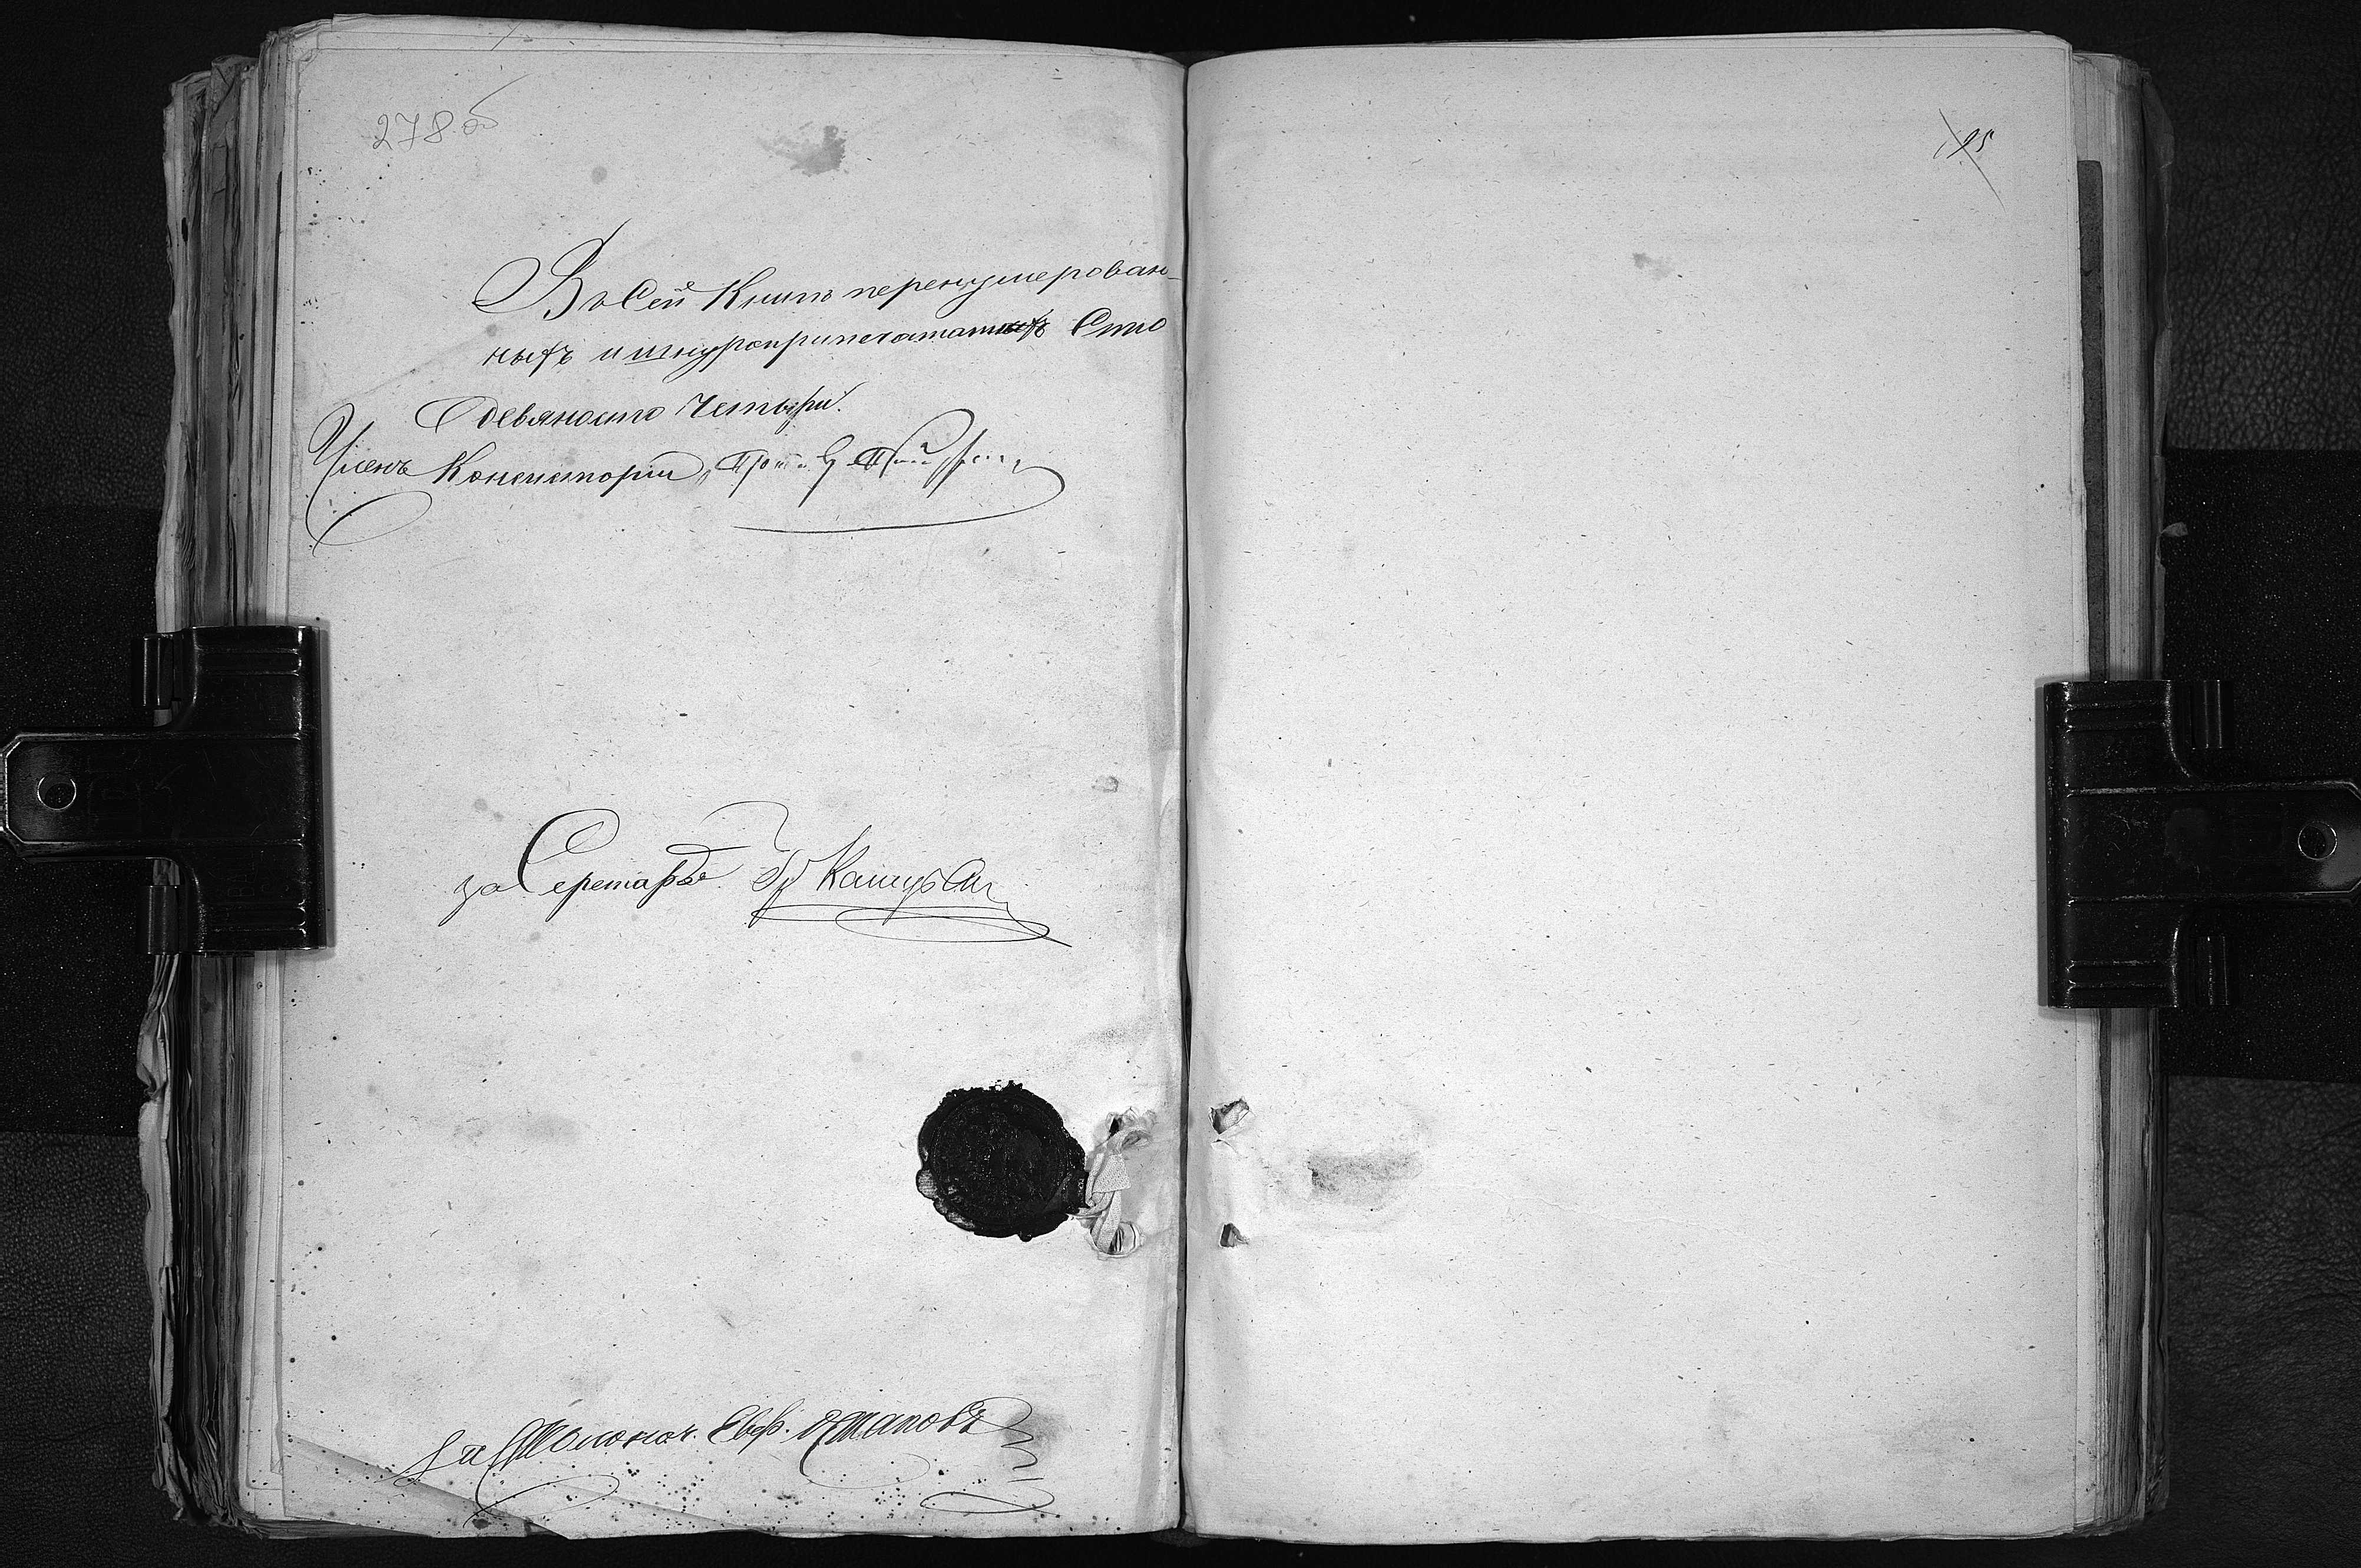 278 об
Въ Сей Книгѣ перенумерован-
ныхъ и шнуроприпечатанныхъ Сто
девяносто четыри.
Членъ Консисторіи, Прот.
за Секретаря
за Столонач. Евф.
195